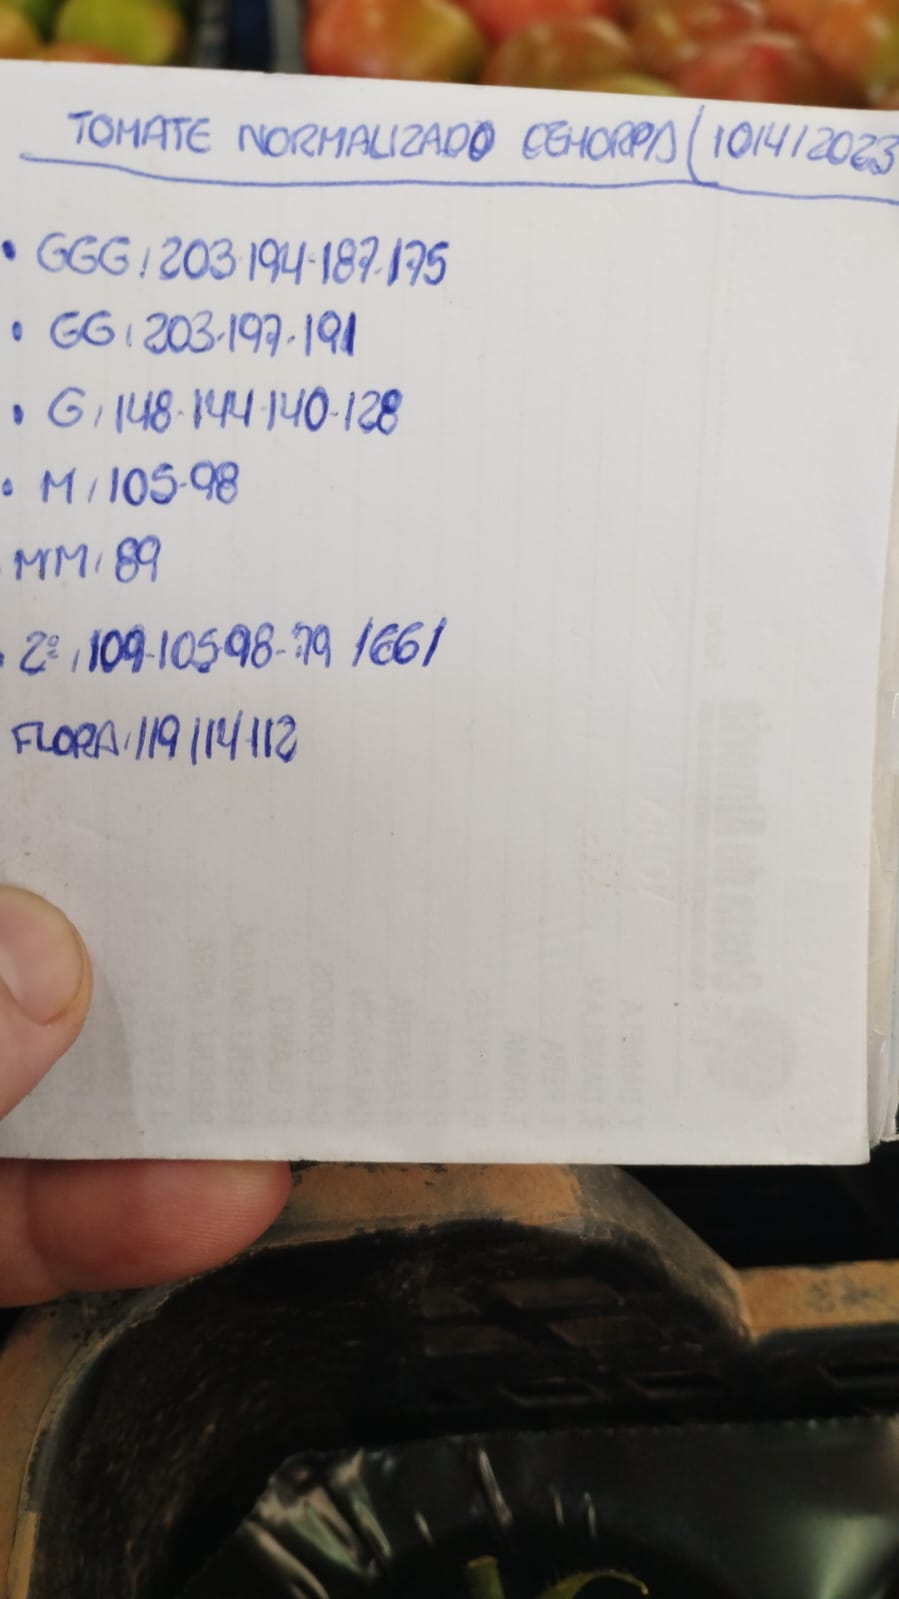 TOMATE NORMALIZADO CEHORPA (10/4/2023
• GGG: 203-194-187-175
• GG: 203-197-191
• G: 148-144-140-128
• M: 105-98
MM: 89
2º: 109-105-98-79 /66/
FLORA: 119 114-112
Costa de Almería